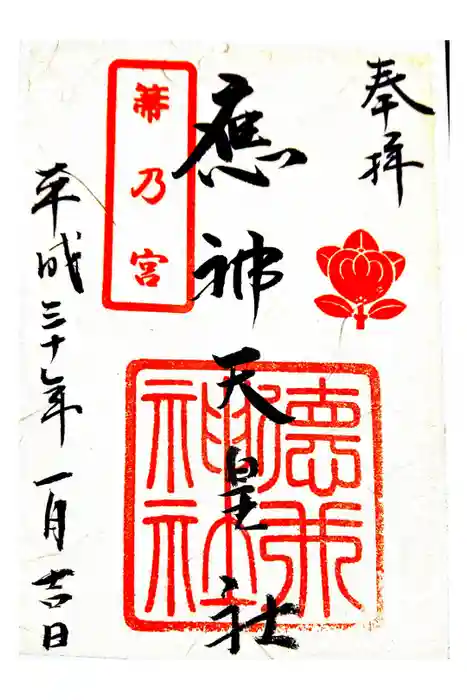 奉拝
應神天皇社
乃宮
神社
平成三十年一月吉日